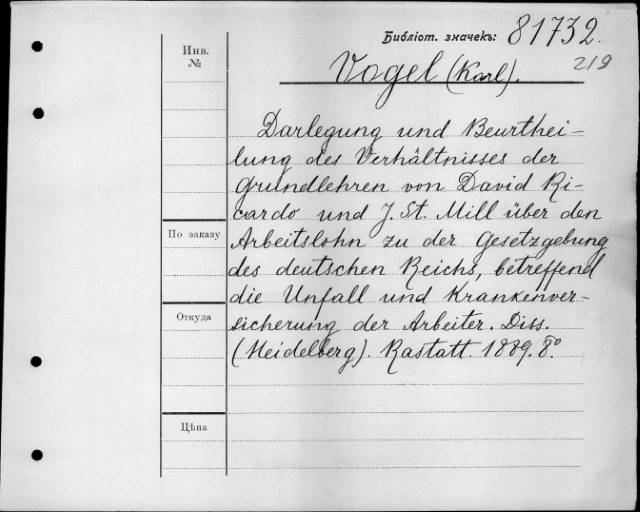 Библіот. значекъ: 81732.
219
Инв.
№
Vogel (Karl).
Darlegung und Beurthei-
lung des Verhältnisses der
Grundlehren von David Ri-
cardo und J. St. Mill über den
По заказу
Arbeitslohn zu der Gesetzgebung
des deutschen Reichs, betreffend
die Unfall und Krankenver-
Откуда
sicherung der Arbeiter. Diss.
(Heidelberg). Rastatt. 1889. 8°.
Цѣна